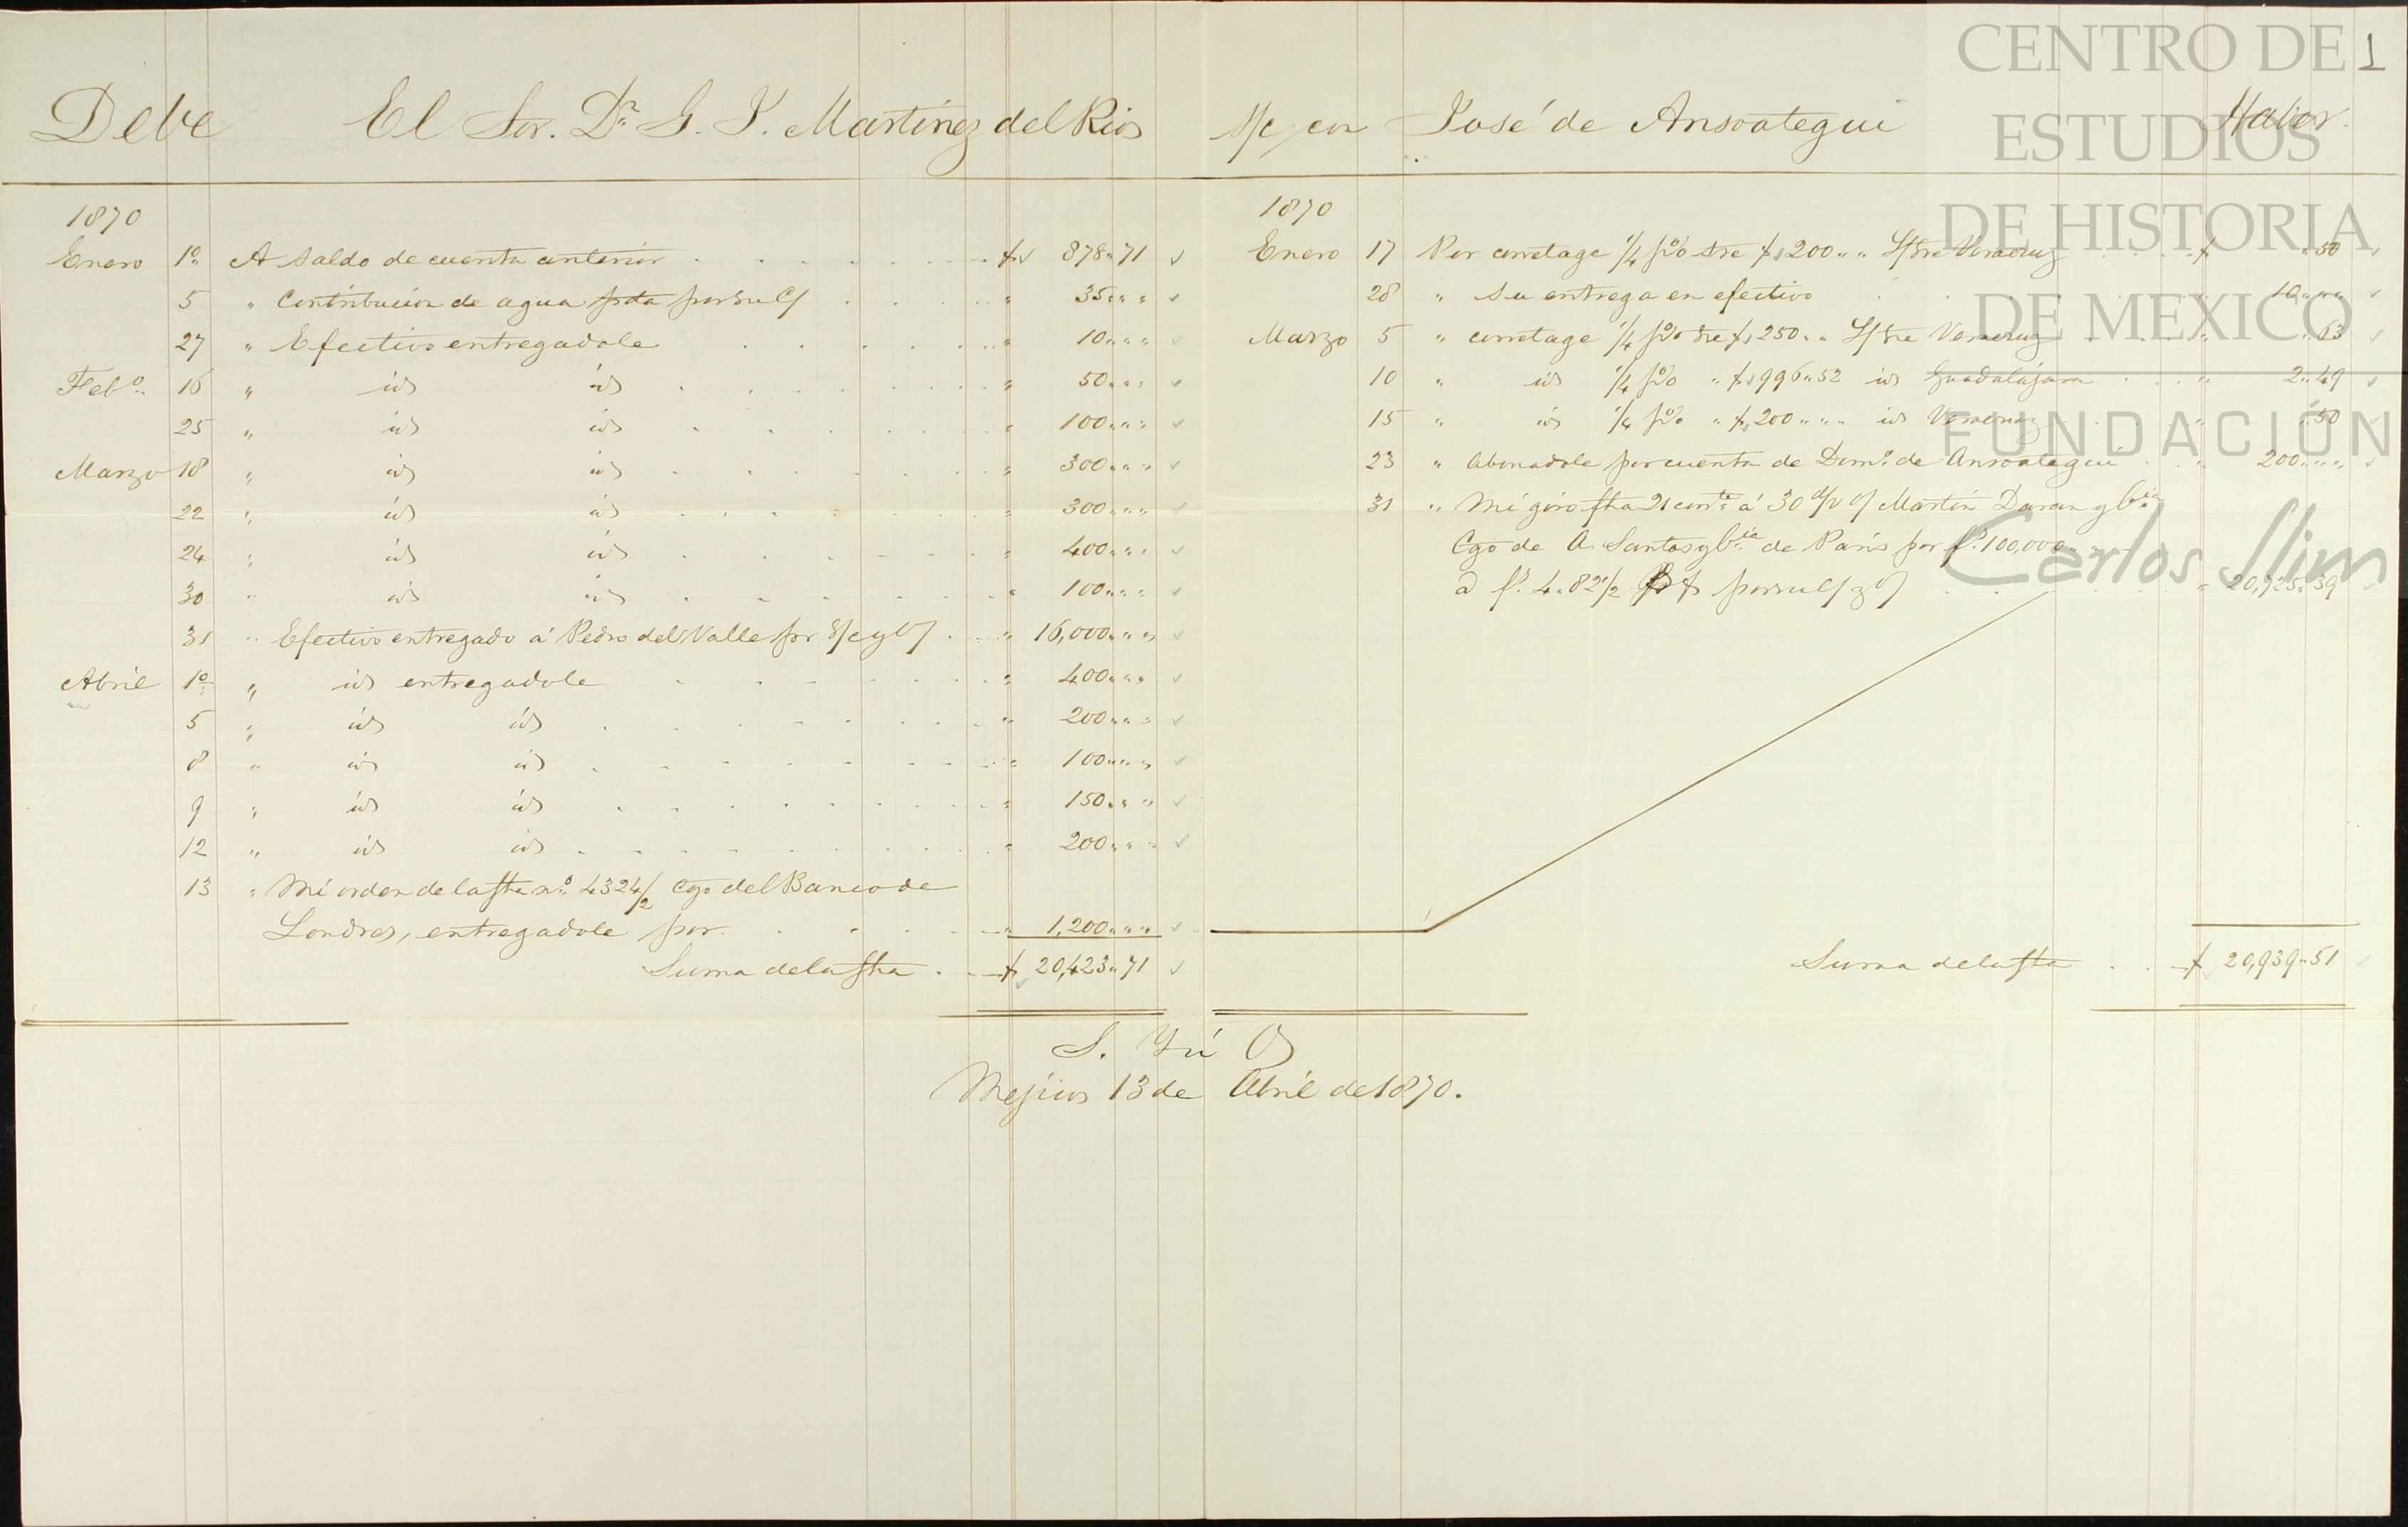 CENTRO DE 1
ESTUDIOS
DE HISTORIA
DE MEXICO
FUNDACIÓN
Carlos Slim
Debe El Sor. Dr. G. J. Martínez del Rio S/c con José de Ansoategui Haber.
1870
Enero 1o. A Saldo de cuenta anterior $ 878"71
5 " Contribucion de agua pda por su c/ " 35" " "
27 " Efectivo entregadole " 10" " "
Febo. 16 " id id " 50" " "
25 " id id " 100" " "
Marzo 18 " id id " 300" " "
22 " id id " 300" " "
24 " id id " 400" " "
30 " id id " 100" " "
31 " Efectivo entregado á Pedro del Valle por S/c y O/ " 16,000" " "
Abril 1o. " id entregadole " 400" " "
5 " id id " 200" " "
8 " id id " 100" " "
9 " id id " 150" " "
12 " id id " 200" " "
13 " Mi orden de la fha no. 4324/2 cgo del Banco de
Londres, entregadole por " 1,200" " "
Suma de la fha $ 20,423"71
1870
Enero 17 Por corretage 1/4 p% sre $200" " L/ sre Veracruz $ "50
28 " Su entrega en efectivo " 10" " "
Marzo 5 " corretage 1/4 p% sre $250" " L/ sre Veracruz " "63
10 " id 1/4 p% " $996"52 id Guadalajara " 2"49
15 " id 1/4 p% " $200" " " id Veracruz " "50
23 " Abonadole por cuenta de Domo. de Ansoategui " 200" " "
31 " Mi giro fha 21 corrte. á 30 d/v o/ Martin Daran y Cia.
Cgo de A. Santos y Cia. de Paris por f. 100,000
a f. 4.82 1/2 p $ por su c/ y O/ " 20,725"39
Suma de la fha $ 20,939"51
S. Yú O
Mejico 13 de Abril de 1870.